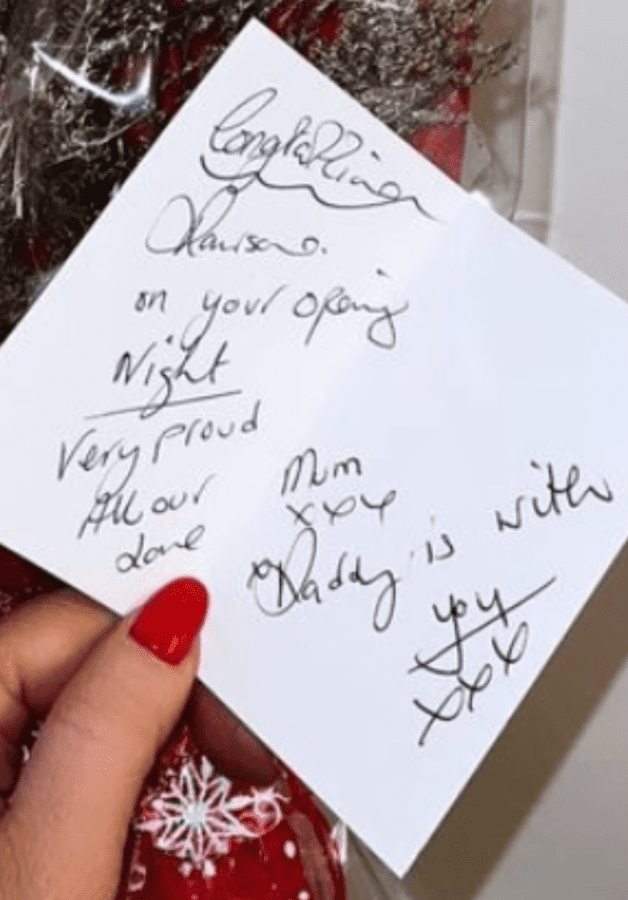 Congratulations
on your opening
Night
Very proud
All our
love
Mum
xxx
Daddy is with
you
xxx